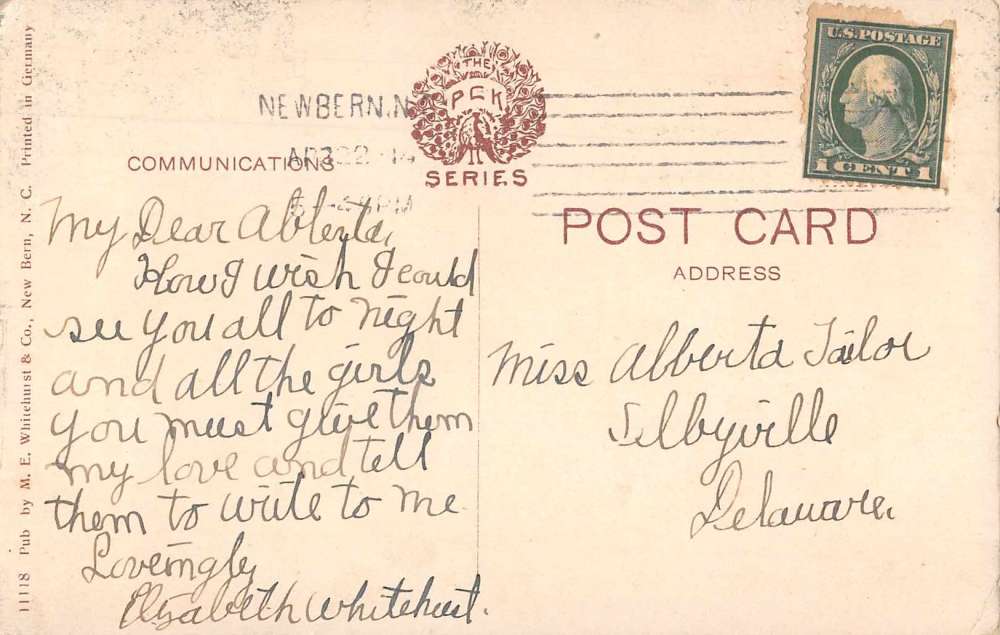 11118 Pub by M. E. Whitehurst & Co., New Bern, N. C. Printed in Germany
NEWBERN, N
APR 22
PM
THE
PCK
SERIES
U.S. POSTAGE
1 CENT 1
COMMUNICATIONS
My Dear Abberta,
How I wish I could
see you all to night
and all the girls
you must give them
my love and tell
them to write to me.
Loveingly
Elizabeth Whitehurst.
POST CARD
ADDRESS
Miss Abberta Tailor
Selbyville
Delaware.